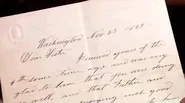 Washington Nov 23 1863
Dear Sister I received yours of the
4th some time ago and was very
glad to hear that you were doing
well and that Father and
with your